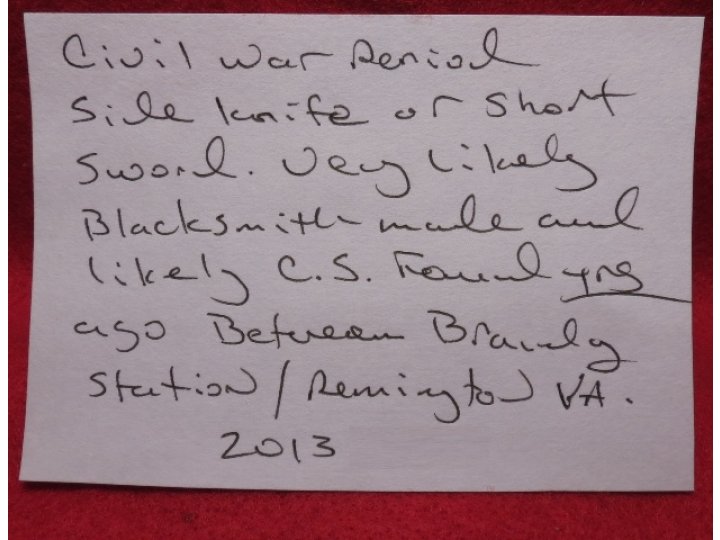 Civil War Period
Side knife or short
sword. Very likely
Blacksmith made and
likely C.S. Found yrs
ago Between Brandy
Station / Remington VA.
2013